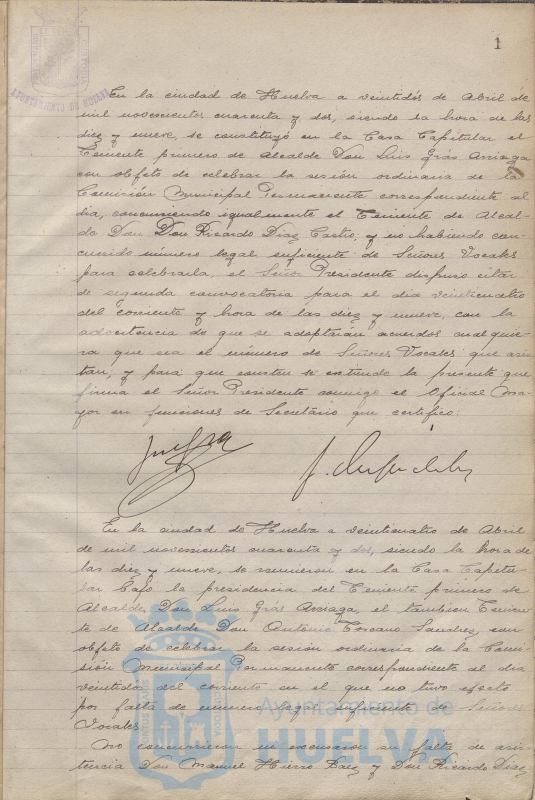 1
AYUNTAMIENTO DE HUELVA
En la ciudad de Huelva a veintidós de Abril de
mil novecientos cuarenta y dos, siendo la hora de las
diez y nueve, se constituyó en la Casa Capitular el
Teniente primero de Alcalde Don Luis Grás Arriaga
con objeto de celebrar la sesión ordinaria de la
Comisión Municipal Permanente correspondiente al
dia, concurriendo igualmente el Teniente de Alcal-
de Don Don Ricardo Diaz Castro, y no habiendo con-
currido número legal suficiente de Señores Vocales
para celebrarla, el Señor Presidente dispuso citar
de segunda convocatoria para el dia veinticuatro
del corriente y hora de las diez y nueve, con la
advertencia de que se adoptarán acuerdos cualquie-
ra que sea el número de Señores Vocales que asis-
tan; y para que conste se extiende la presente que
firma el Señor Presidente conmigo el Oficial Ma-
yor en funciones de Secretario que certifico:
En la ciudad de Huelva a veinticuatro de Abril
de mil novecientos cuarenta y dos, siendo la hora de
las diez y nueve, se reunieron en la Casa Capitu-
lar bajo la presidencia del Teniente primero de
Alcalde Don Luis Grás Arriaga, el tambien Tenien-
te de Alcalde Don Antonio Toscano Sanchez, con
objeto de celebrar la sesión ordinaria de la Comi-
sión Municipal Permanente correspondiente al dia
veintidos del corriente en el que no tuvo efecto
por falta de número legal suficiente de Señores
Vocales.
No concurrieron ni excusaron su falta de asis-
tencia Don Manuel Hierro Baez y Don Ricardo Diaz
Ayuntamiento de
HUELVA